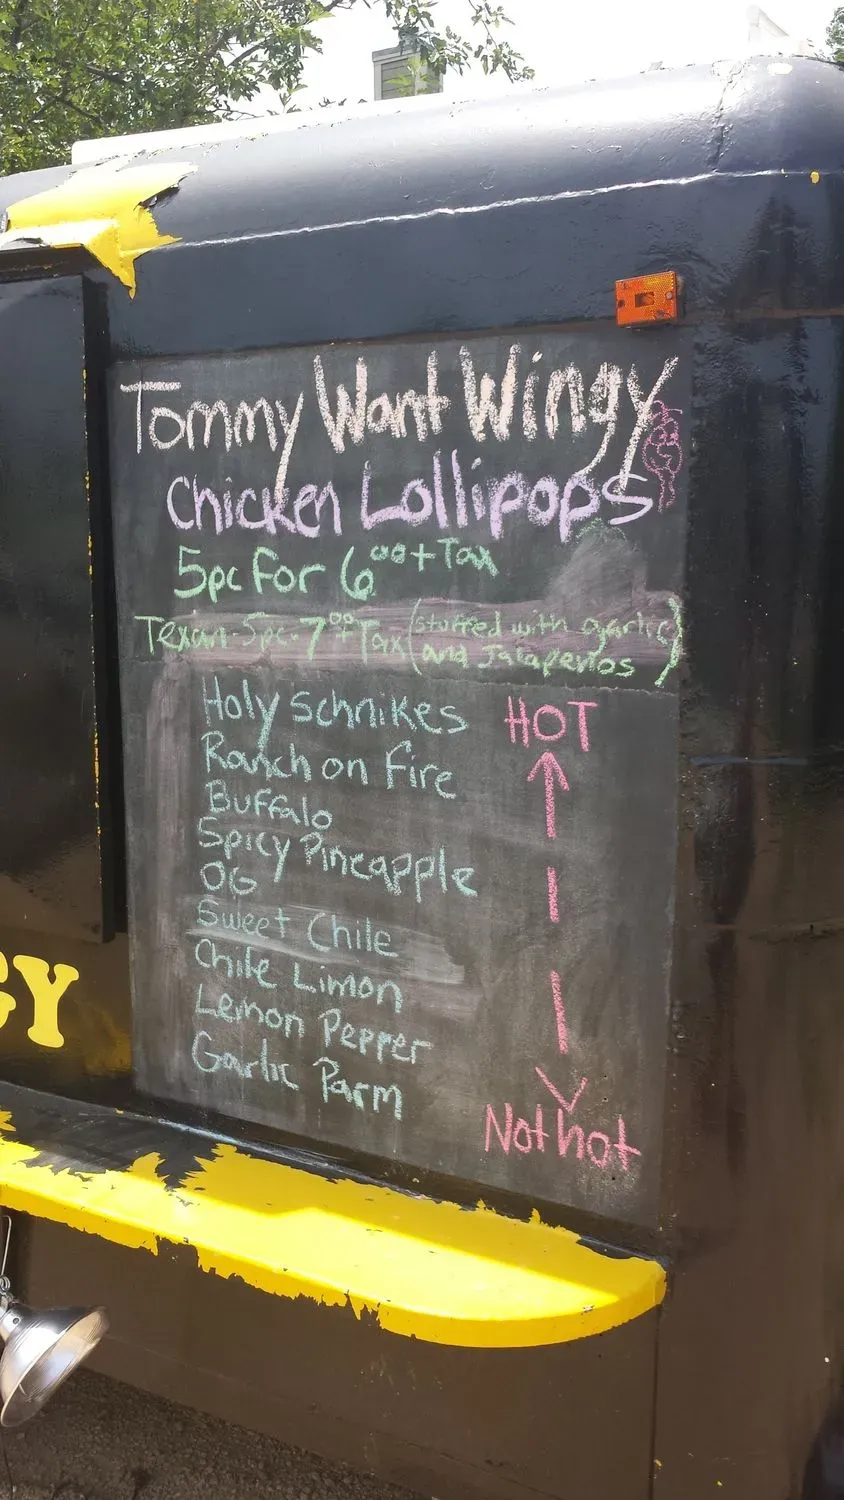 Tommy Want Wingy
Chicken Lollipops
5pc for 6⁰⁰+Tax
Texan-5pc-7⁰⁰+Tax (stuffed with garlic
and Jalapenos)
Holy Schnikes
HOT
Ranch on Fire
Buffalo
Spicy Pineapple
OG
Sweet Chile
Chile Limon
Lemon Pepper
Garlic Parm
Not hot
GY